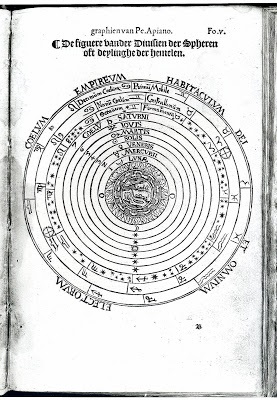 graphien van Pe. Apiano. Fo. v.
¶ De figuere vander Diuisien der Spheren
oft deylinghe der hemelen.
COELVM EMPIREVM HABITACVLVM DEI ET OMNIVM ELECTORVM
Decimum Coelum Primũ Mobile
Nonũ Coelũ Cristallinum
COELV SATVRNI
IOVIS
MARTIS
SOLIS
VENERIS
MERCVRII
LVNAE
B